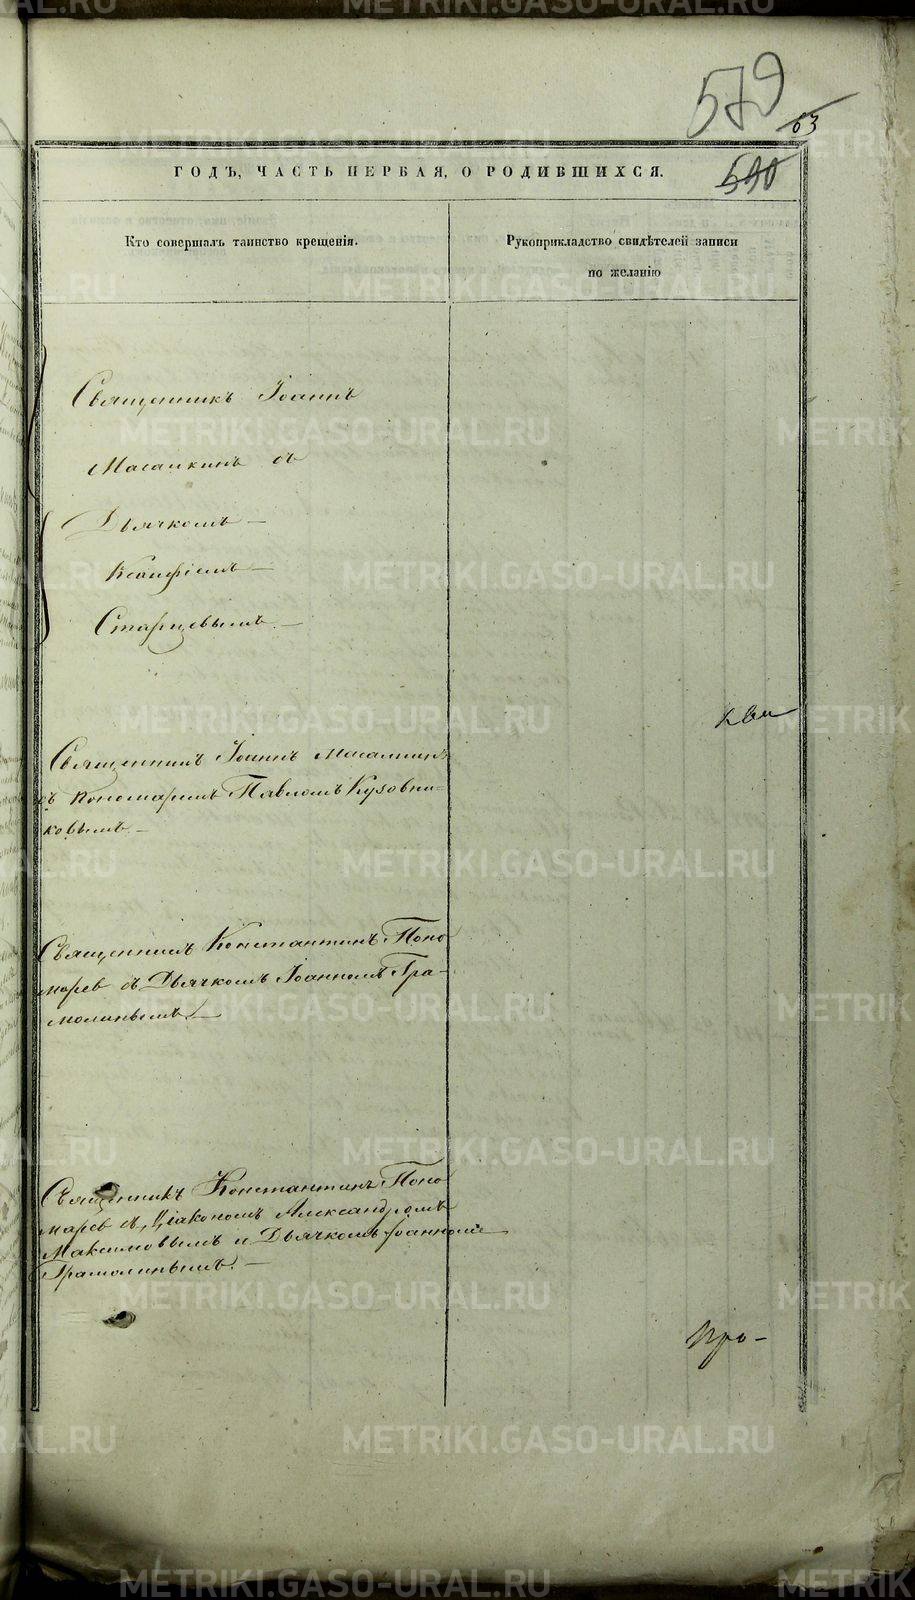 579
63
590
ГОДЪ, ЧАСТЬ ПЕРВАЯ, О РОДИВШИХСЯ.
Кто совершалъ таинство крещенія.
Рукоприкладство свидѣтелей записи
по желанію
Священникъ Іоаннъ
Масалкинъ съ
Дьячкомъ —
Старцевымъ. —
Священникъ Іоаннъ Масалкинъ
съ Пономаремъ Павломъ Кузовни-
ковымъ —
Священникъ Константинъ Поно
марев съ Дьячкомъ Іоанномъ Гра-
молинымъ. —
Священникъ Константинъ Поно
марев съ Діакономъ Александромъ
Максимовымъ и Дьячкомъ Іоанномъ
Грамолинымъ. —
METRIKI.GASO-URAL.RU